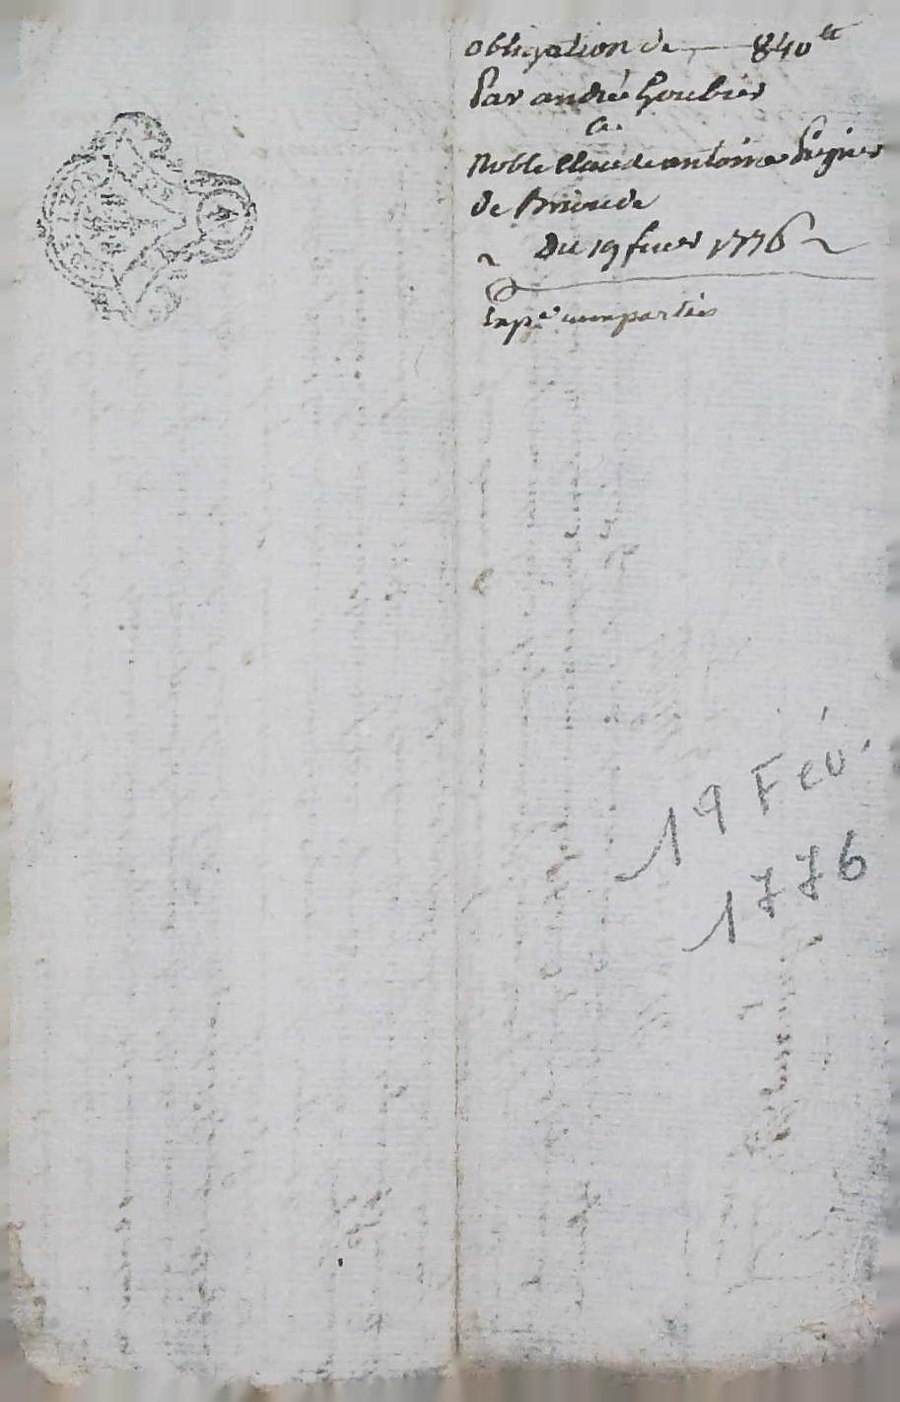 obligation de 840ᵗᵗ
Par andré Goubier
a
Noble Claude antoine
de Brioude
Du 19 fevrer 1776
Exp.e aux parties
19 Fév.
1776